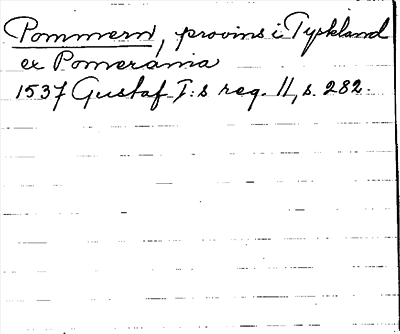 Pommern, provins i Tyskland
ex Pomerania
1537 Gustaf I:s reg. 11, s. 282.